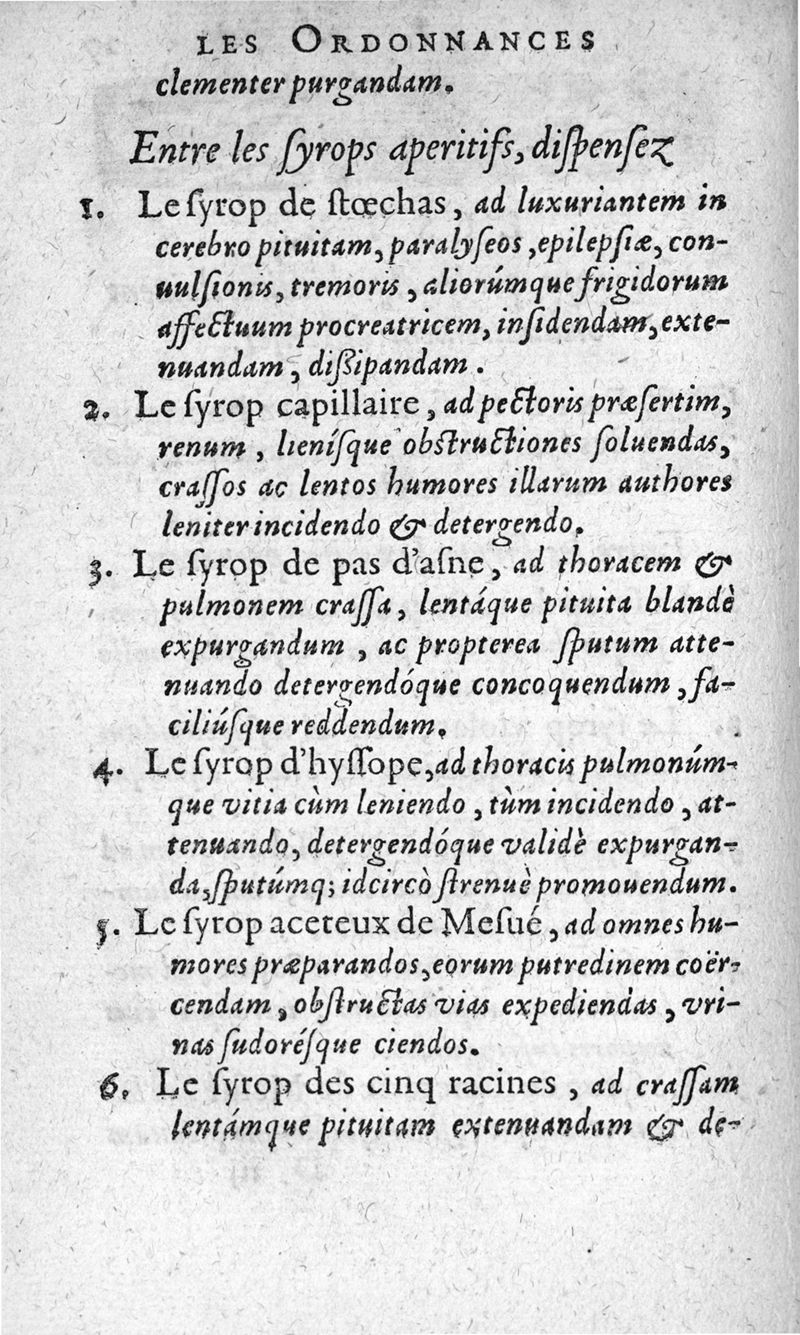 LES ORDONNANCES
clementer purgandam.
Entre les ſyrops aperitifs, diſpenſez
1. Le ſyrop de ſtœchas, ad luxuriantem in
cerebro pituitam, paralyſeos, epilepſiæ, con-
uulſionis, tremoris, aliorúmque frigidorum
affectuum procreatricem, inſidendam, exte-
nuandam, diſsipandam.
2. Le ſyrop capillaire, ad pectoris præſertim,
renum, lieníſque obſtructiones ſoluendas,
craſſos ac lentos humores illarum authores
leniter incidendo & detergendo.
3. Le ſyrop de pas d'aſne, ad thoracem &
pulmonem craſſa, lentáque pituita blandè
expurgandum, ac propterea ſputum atte-
nuando detergendóque concoquendum, fa-
ciliúſque reddendum.
4. Le ſyrop d'hyſſope, ad thoracis pulmonúm-
que vitia cùm leniendo, tùm incidendo, at-
tenuando, detergendóque validè expurgan-
da, ſputúmq; idcircò ſtrenuè promouendum.
5. Le ſyrop aceteux de Meſué, ad omnes hu-
mores præparandos, eorum putredinem coër-
cendam, obſtructas vias expediendas, vri-
nas ſudoréſque ciendos.
6. Le ſyrop des cinq racines, ad craſſam
lentámque pituitam extenuandam & de-